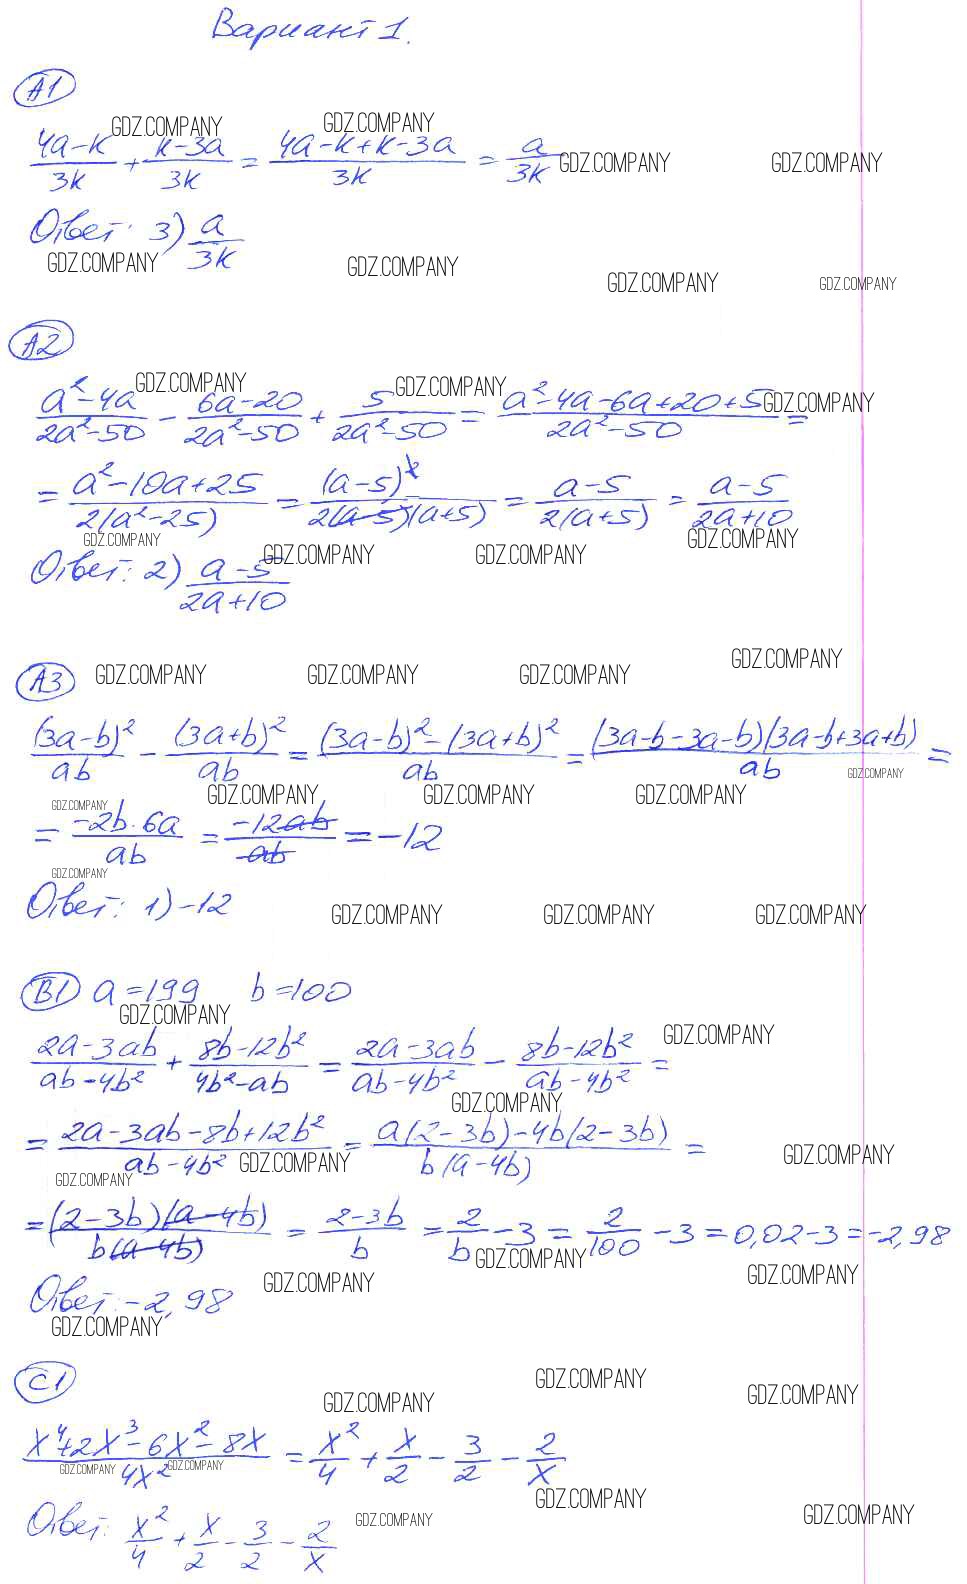 Вариант 1.
А1
GDZ.COMPANY GDZ.COMPANY
(4a-k)/3k + (k-3a)/3k = (4a-k+k-3a)/3k = a/3k GDZ.COMPANY GDZ.COMPANY
Ответ: 3) a/3k
GDZ.COMPANY GDZ.COMPANY GDZ.COMPANY GDZ.COMPANY
А2
GDZ.COMPANY GDZ.COMPANY GDZ.COMPANY
(a²-4a)/(2a²-50) - (6a-20)/(2a²-50) + 5/(2a²-50) = (a²-4a-6a+20+5)/(2a²-50) =
= (a²-10a+25)/(2(a²-25)) = (a-5)²/(2(a-5)(a+5)) = (a-5)/(2(a+5)) = (a-5)/(2a+10)
GDZ.COMPANY GDZ.COMPANY GDZ.COMPANY GDZ.COMPANY
Ответ: 2) (a-5)/(2a+10)
А3 GDZ.COMPANY GDZ.COMPANY GDZ.COMPANY GDZ.COMPANY
(3a-b)²/ab - (3a+b)²/ab = ((3a-b)²-(3a+b)²)/ab = (3a-b-3a-b)(3a-b+3a+b)/ab =
GDZ.COMPANY
GDZ.COMPANY GDZ.COMPANY GDZ.COMPANY GDZ.COMPANY
= (-2b·6a)/ab = -12ab/ab = -12
GDZ.COMPANY
Ответ: 1) -12 GDZ.COMPANY GDZ.COMPANY GDZ.COMPANY
В1 a=199 b=100
GDZ.COMPANY GDZ.COMPANY
(2a-3ab)/(ab-4b²) + (8b-12b²)/(4b²-ab) = (2a-3ab)/(ab-4b²) - (8b-12b²)/(ab-4b²) =
GDZ.COMPANY
= (2a-3ab-8b+12b²)/(ab-4b²) = (a(2-3b)-4b(2-3b))/(b(a-4b)) =
GDZ.COMPANY GDZ.COMPANY GDZ.COMPANY
= (2-3b)(a-4b)/(b(a-4b)) = (2-3b)/b = 2/b - 3 = 2/100 - 3 = 0,02-3 = -2,98
GDZ.COMPANY GDZ.COMPANY GDZ.COMPANY
Ответ: -2,98
GDZ.COMPANY
С1
GDZ.COMPANY GDZ.COMPANY GDZ.COMPANY
(x⁴+2x³-6x²-8x)/4x² = x²/4 + x/2 - 3/2 - 2/x
GDZ.COMPANY GDZ.COMPANY GDZ.COMPANY
Ответ: x²/4 + x/2 - 3/2 - 2/x GDZ.COMPANY GDZ.COMPANY